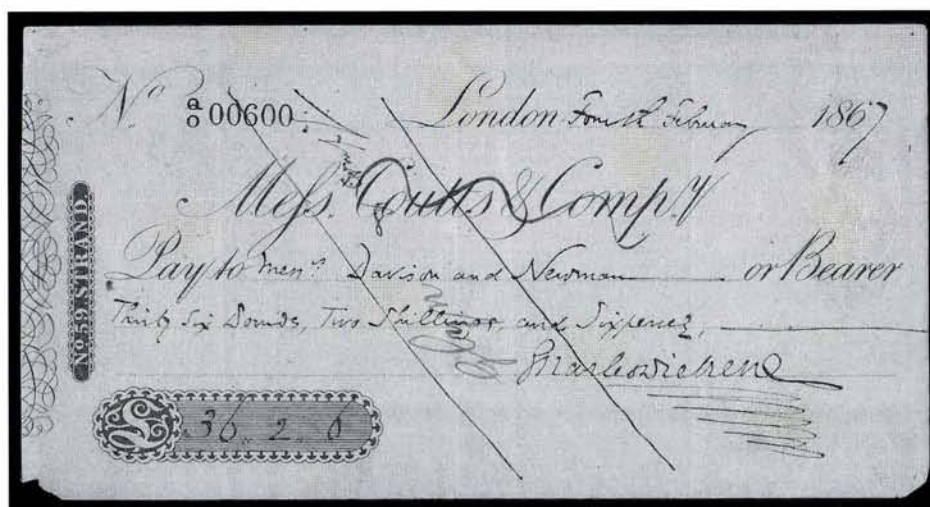 No a/o 00600 London Fourth February 1867
Mess. Coutts & Compy
Pay to Messrs Davison and Newman or Bearer
Thirty Six Pounds, Two Shillings, and Sixpence,
Charles Dickens
No 59 STRAND
£ 36 . 2 . 6